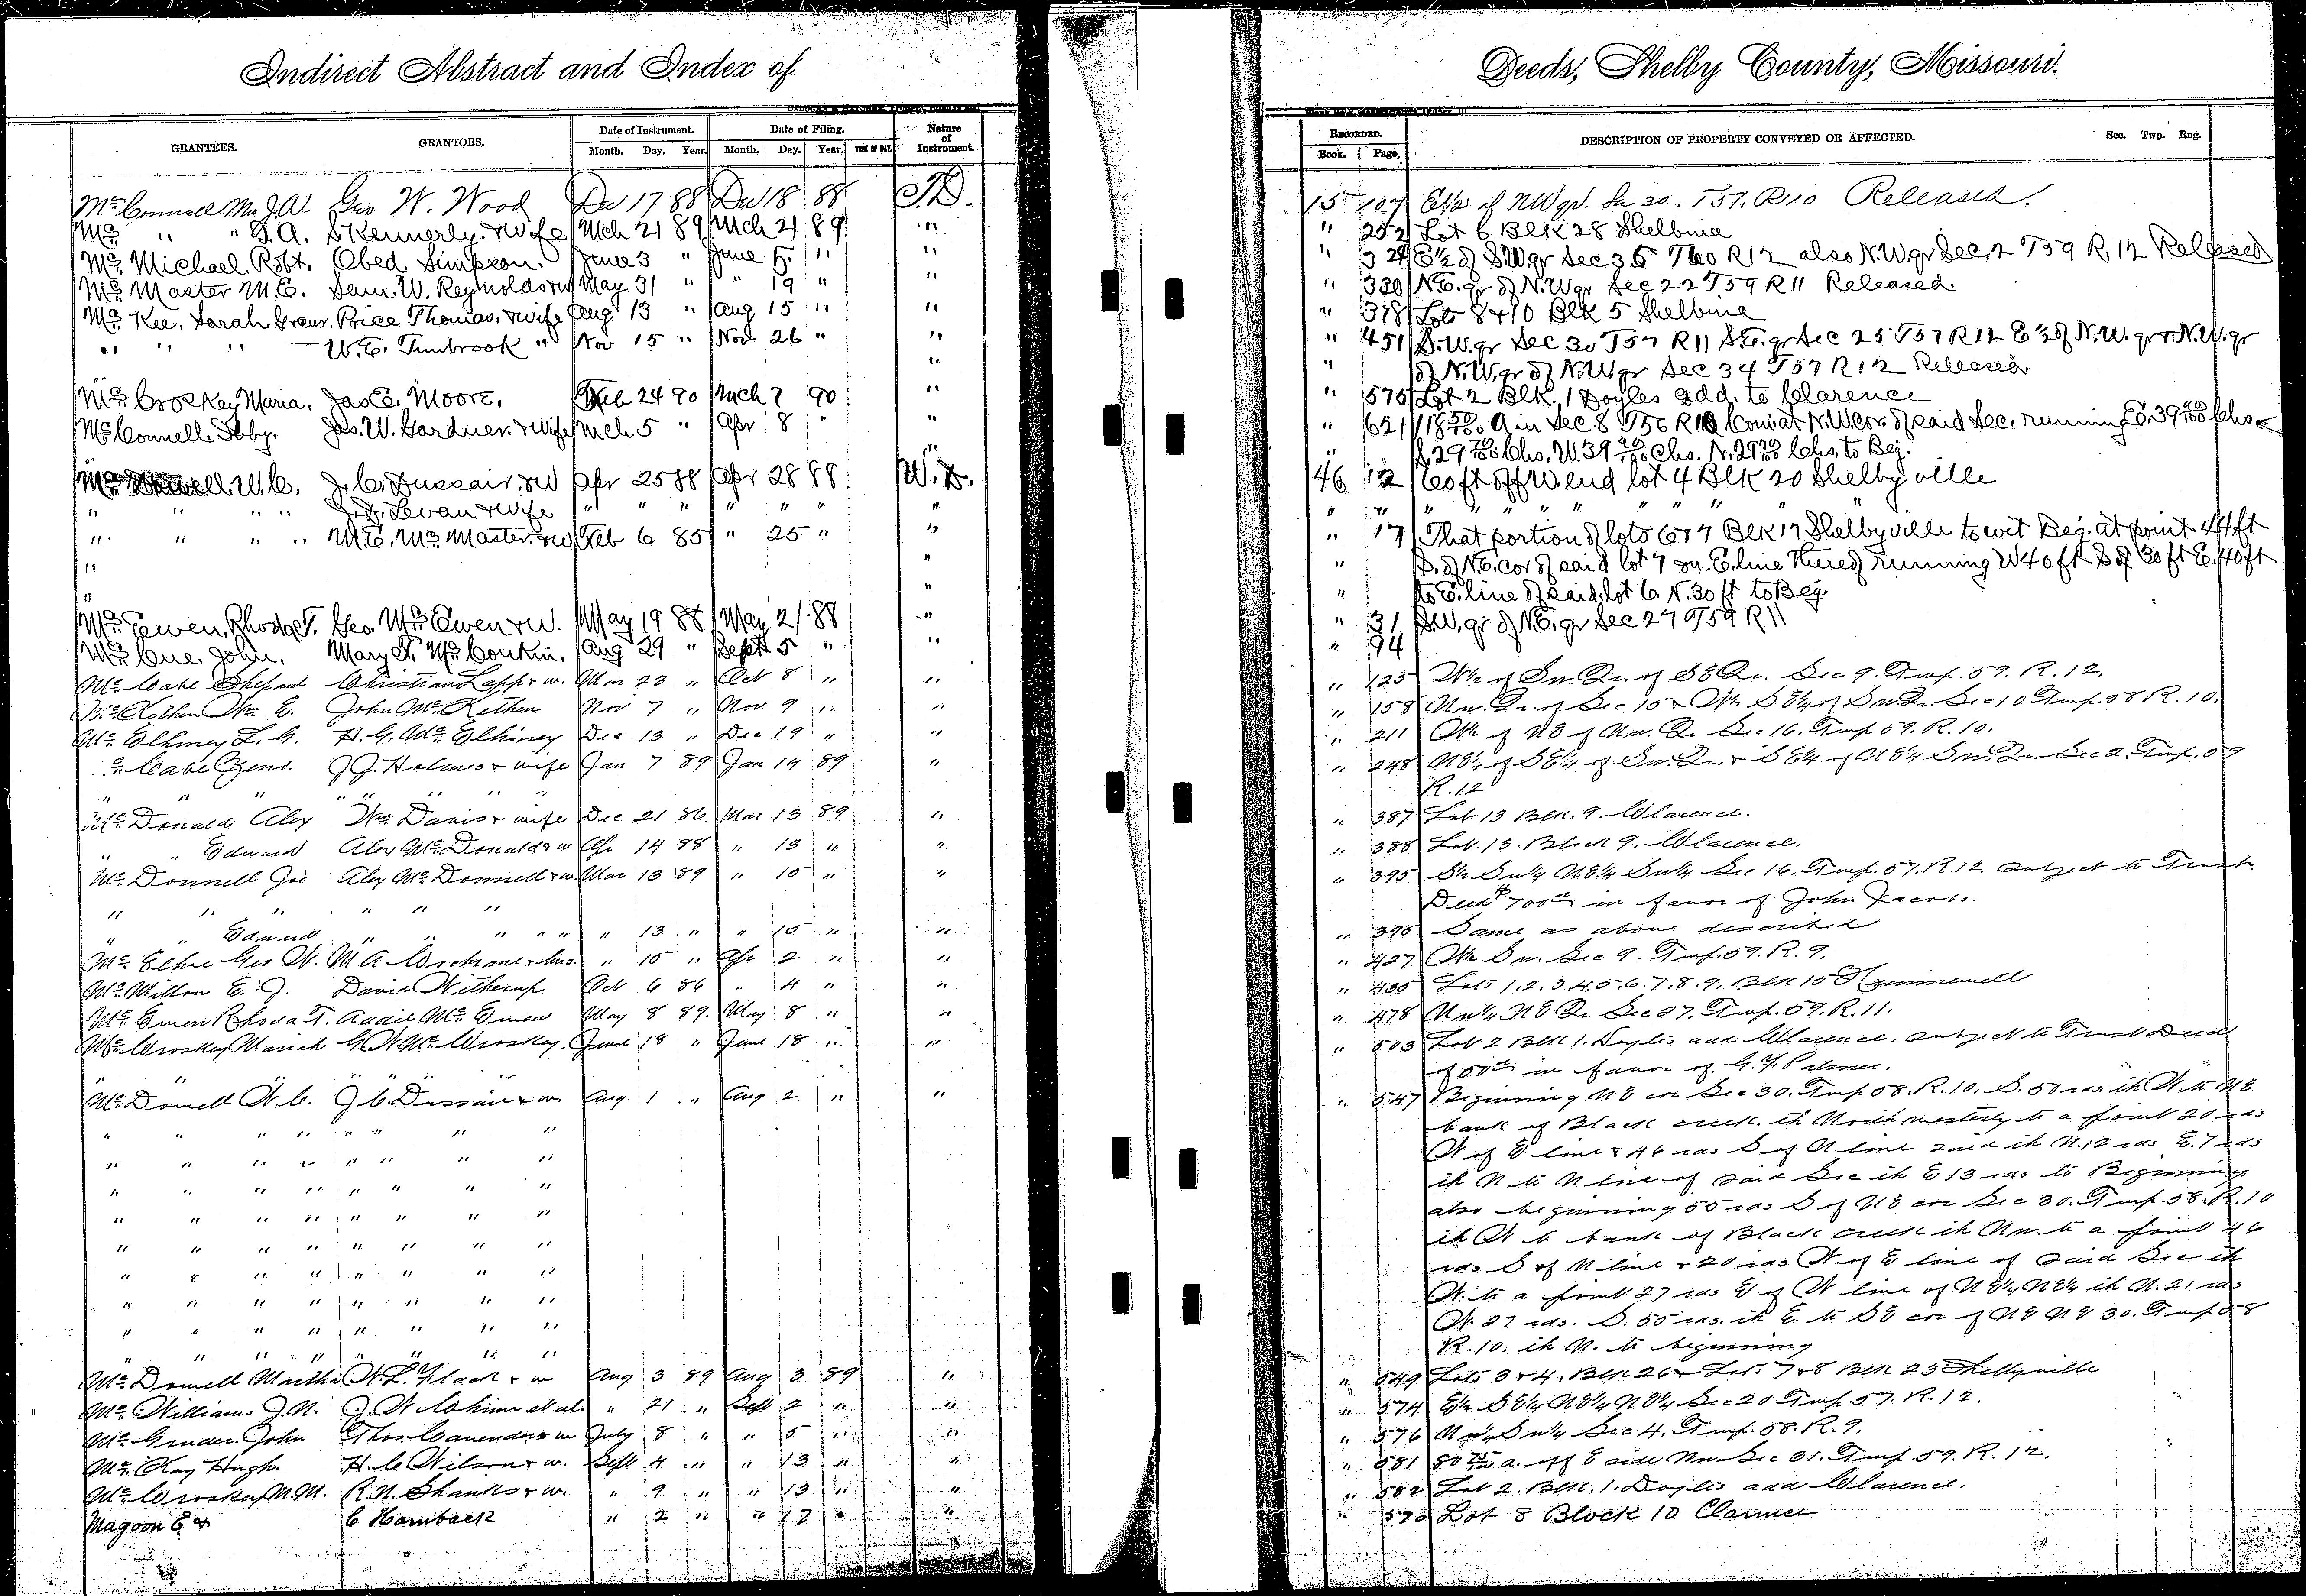 Indirect Abstract and Index of Deeds, Shelby County, Missouri.
GRANTEES. GRANTORS. Date of Instrument. Date of Filing. Nature of Instrument. RECORDED. DESCRIPTION OF PROPERTY CONVEYED OR AFFECTED. Sec. Twp. Rng.
Month. Day. Year. Month. Day. Year. Book. Page.
Mc Connell Mrs J.A. Geo W. Wood Dec 17 88 Dec 18 88 T.D. 15 107 E½ of NW qr. Sec 30. T57. R10 Released.
Mc " " J.A. Kennerly & Wife Mch 21 89 Mch 21 89 " " 252 Lot 6 Blk 28 Shelbina
Mc Michael Robt. Obed Simpson. June 3 " June 5 " " " 324 E½ of SW qr Sec 35 T60 R12 also N.W qr Sec. 2 T59 R. 12 Released
Mc Master M.E. Saml. W. Reynolds & W May 31 " " 19 " " " 330 N.E. qr of N.W qr Sec 22 T59 R11 Released.
Mc Kee, Sarah Price Thomas, & wife Aug 13 " Aug 15 " " " 378 Lots 8 & 10 Blk 5 Shelbina
" " " W.E. Timbrook " Nov 15 " Nov 26 " " " 451 S.W. qr Sec 30 T57 R11 S.E. qr Sec 25 T57 R12 E½ of N.W. qr & N.W. qr
" " of N.W. qr of N.W. qr Sec 34 T57 R12 Released.
Mc Croskey Maria. Jas. E. Moore, Feb 24 90 Mch 7 90 " " 575 Lot 2 Blk. 1 Doyles add. to Clarence
Mc Connell Toby. Jas. W. Gardner & Wife Mch 5 " Apr 8 " " " 621 A in Sec. 8 T56 R10 Com at N.W cor. of said Sec. running E. 39 Chs
" " S. 29 Chs. W. 39 Chs. N. 29 Chs. to Beg.
Mc W.C. J.C. Dussair & W Apr 25 88 Apr 28 88 W.D. 46 12 60 ft off W. end lot 4 Blk 20 Shelbyville
" " " " Levan & Wife " " " " " " " " " " " " " " "
" " " " M.E. Mc Master & W Feb 6 85 " 25 " " " 17 That portion of lots 6 & 7 Blk 17 Shelbyville to wit Beg. at point 44 ft
" " " S. of N.E. cor of said lot 7 on E. line thereof running W 40 ft S 30 ft E. 40 ft
" " " to E. line of said lot 6 N. 30 ft to Beg.
Mc Ewen, Rhoda T. Geo. Mc Ewen & W. May 19 88 May 21 88 " " 31 S.W. qr of N.E. qr Sec 27 T59 R11
Mc Cue, John. Mary F. Mc Conkin. Aug 29 " Sept 5 " " " 94
Mc Cabe Shepard Christian Lapp & w. Mar 23 " Oct 8 " " " 125 W½ of Sw. Qr. of SE Qr. Sec 9. Twp. 59. R. 12.
Mc Kethen Wm E. John Mc Kethen Nov 7 " Nov 9 " " " 158 Nw. Qr. of Sec 15 & W½ SE¼ of Sw. Qr. Sec 10 Twp. 58 R. 10.
Mc Elhiney L. G. H. G. Mc Elhiney Dec 13 " Dec 19 " " " 211 W½ of NE of Nw. Qr Sec 16. Twp 59. R. 10.
Mc Cabe J. J. Holmes & wife Jan 7 89 Jan 14 89 " " 248 NE¼ of SE¼ of Sw. Qr. & SE¼ of NE¼ Sw. Qr. Sec 2. Twp. 59
" " " " " R. 12
Mc Donald Alex Wm Davis & wife Dec 21 86. Mar 13 89 " " 387 Lot 13 Blk. 9. Clarence.
" " Edward Alex Mc Donald & w Apr 14 88 " 13 " " " 388 Lot. 13. Block 9. Clarence.
Mc Donnell Joe Alex Mc Donnell & w. Mar 13 89 " 15 " " " 395 S½ Sw¼ NE¼ Sw¼ Sec 16. Twp. 57. R. 12. subject to Trust
" " " " " " Deed $700 in favor of John Jacobs.
" " Edward " " " " " " 13 " " 15 " " " 395 Same as above described
Mc Elhoe Geo W. M A Cochrane & hus. " 15 " Apr 2 " " " 427 W½ Sw. Sec 9. Twp. 59. R. 9.
Mc Millon E. J. David Witherup Oct 6 86 " 4 " " " 435 Lots 1, 2, 3, 4, 5, 6, 7, 8, 9, Blk 15 Hunnewell
Mc Ewen Rhoda T. Addie Mc Ewen May 8 89. May 8 " " " 478 Nw¼ NE Qr. Sec 27, Twp. 59. R. 11.
Mc Croskey Mariah G. W. Mc Croskey. June 18 " June 18 " " " 503 Lot 2 Blk 1. Doyles add Clarence, subject to Trust Deed
" " " " " of 50 in favor of G. Y. Palmer.
Mc Dowell W. C. J. C. Dussair & w Aug 1 " Aug 2 " " " 547 Beginning NE cor Sec 30. Twp 58. R. 10. S. 50 rds. th W. to NE
" " " " " " " " bank of Black creek. th North westerly to a point 20 rds
" " " " " " " " W of E line & 46 rds S of N line said th N. 12 rds E. 7 rds
" " " " " " " " th N to N line of said Sec th E 13 rds to Beginning
" " " " " " " " also beginning 55 rds S of NE cor Sec 30. Twp. 58. R. 10
" " " " " " " " th W to bank of Black creek th Nw. to a point 46
" " " " " " " " rds S of N line & 20 rds W of E line of said Sec th
" " " " " " " " W. to a point 27 rds E of W line of NE¼ NE¼ th N. 21 rds
" " " " " " " " W. 27 rds. S. 55 rds. th E. to SE cor of NE NE 30. Twp 58
" " " " " " " " R. 10. th N. to beginning
Mc Dowell Martha W. L. Flack & w Aug 3 89 Aug 3 89 " " 549 Lots 3 & 4, Blk 26 & Lots 7 & 8 Blk 23 Shelbyville
Mc Williams J. N. J. W. et al. " 21 " Sept 2 " " " 574 E½ SE¼ NE¼ NE¼ Sec 20 Twp. 57. R. 12.
Mc Gruder John Thos. Cavender & w July 8 " " 5 " " " 576 Nw¼ Sw¼ Sec 4, Twp. 58. R. 9.
Mc Kay Hugh. H. C Wilson & w. Sept 4 " " 13 " " " 581 80 a. off E side Nw. Sec 31. Twp. 59. R. 12.
Mc Croskey M. M. R. N. Shanks & w. " 9 " " 13 " " " 582 Lot 2. Blk. 1. Doyles add Clarence.
Magoon E C Hornback " 2 " " 17 " " " Lot 8 Block 10 Clarence